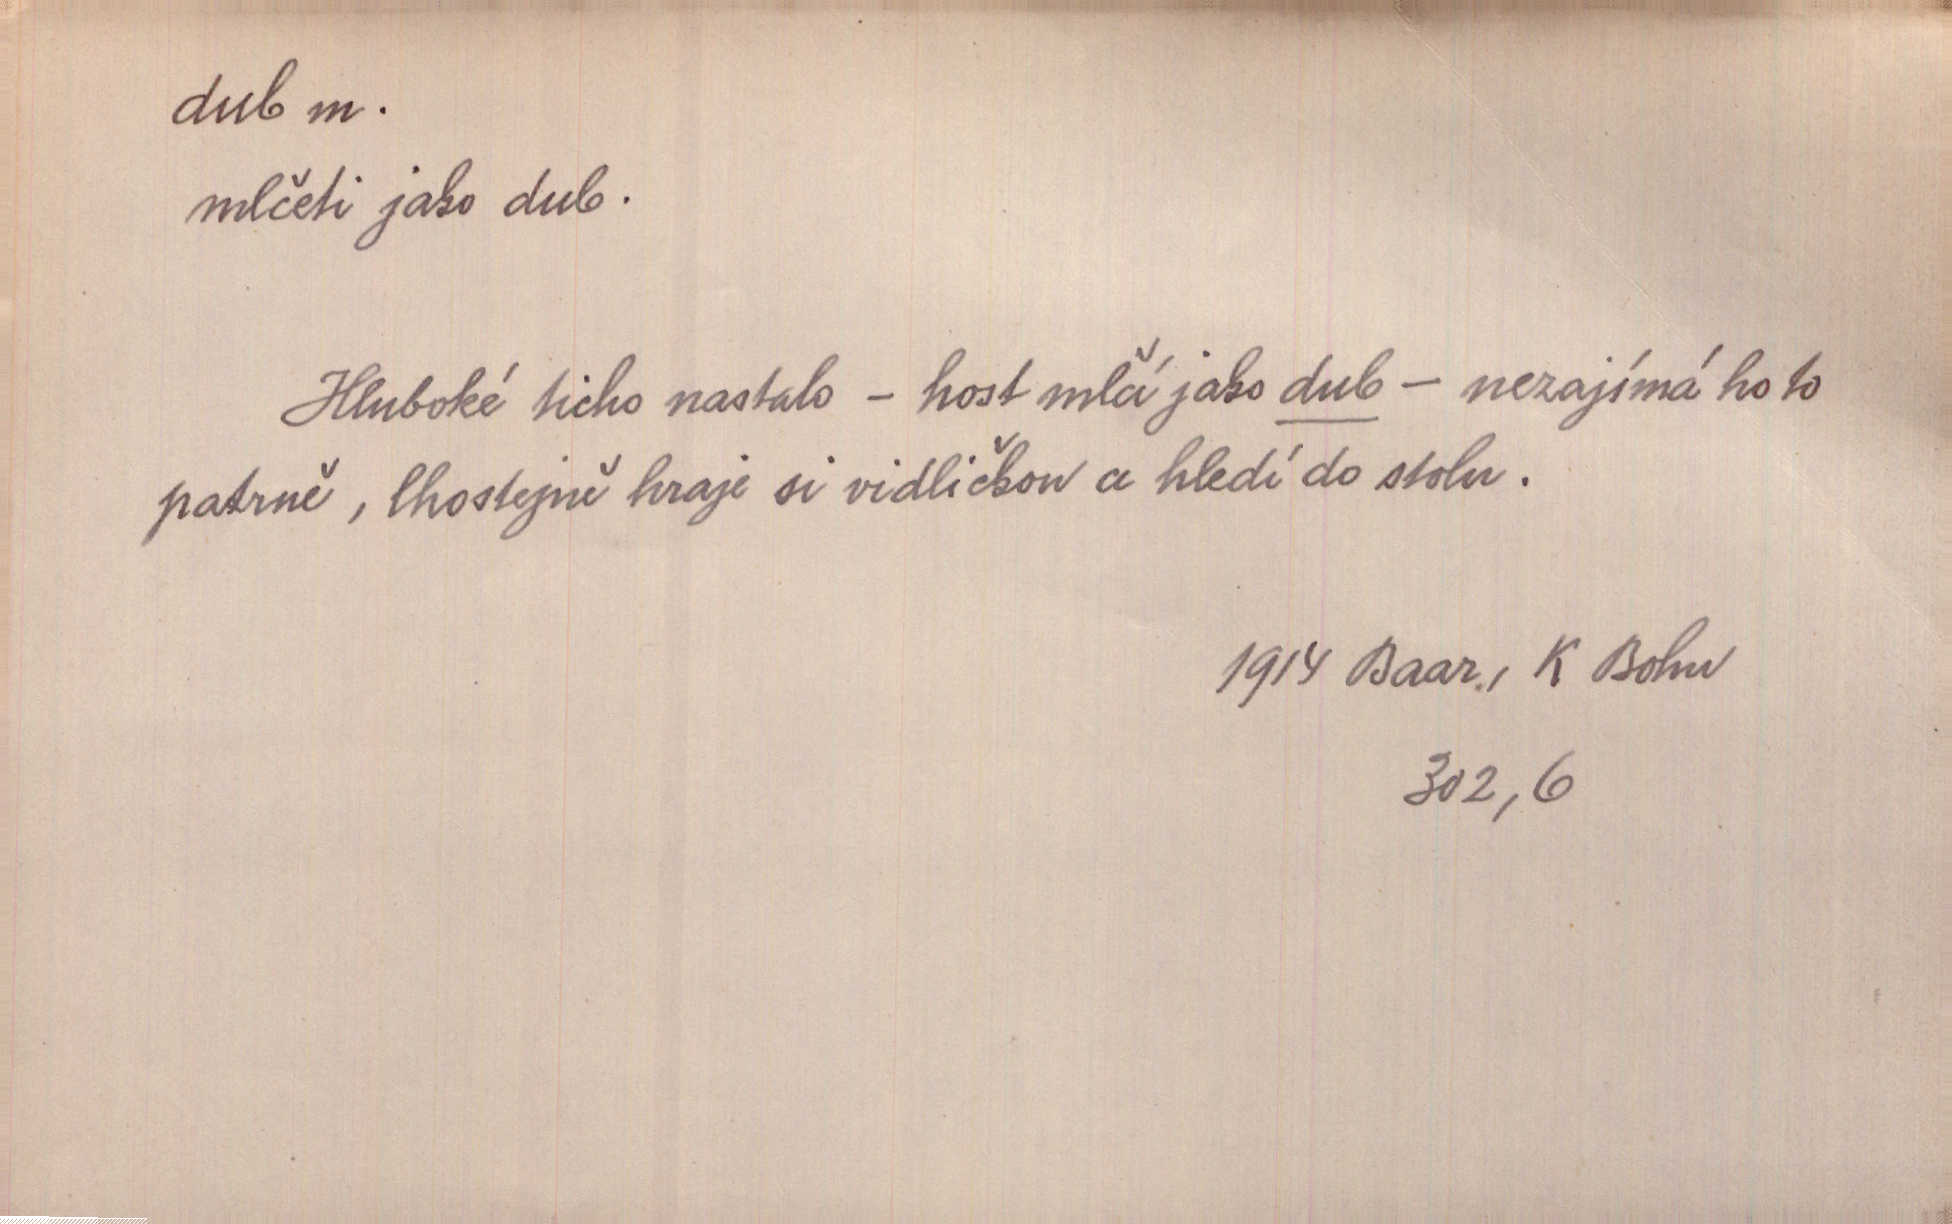 dub m.
mlčeti jako dub.
Hluboké ticho nastalo – host mlčí jako dub – nezajímá ho to
patrně, lhostejně hraje si vidličkou a hledí do stolu.
1914 Baar., K Bohu
302,6